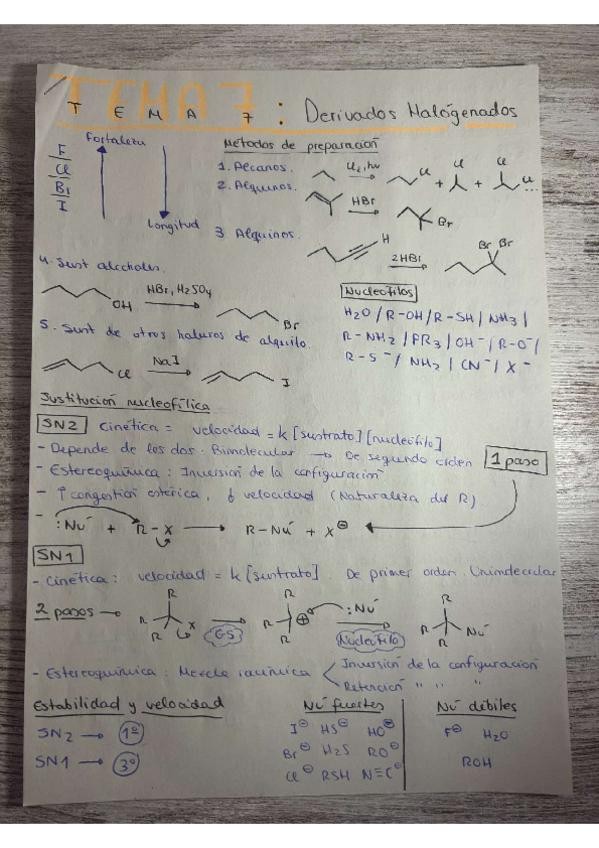 TEMA 7: Derivados Halógenados
Fortaleza
F
Cl
Br
I
Longitud
Métodos de preparación
1. Alcanos.
Cl2, hν
Cl
+
Cl
+
Cl
Cl
...
2. Alquinos.
HBr
Br
3 Alquinos.
H
2HBr
Br Br
4. Sust alcoholes.
OH
HBr, H2SO4
Br
5. Sunt de otros haluros de alquilo.
Cl
NaI
I
Nucleófilos
H2O / R-OH / R-SH / NH3 /
R-NH2 / PR3 / OH⁻ / R-O⁻ /
R-S⁻ / NH2 / CN⁻ / X⁻
Sustitución nucleofílica
SN2 Cinética = velocidad = k [sustrato] [nucleófilo]
- Depende de los dos. Bimolecular → De segundo orden
1 paso
- Estereoquímica: Inversión de la configuración
- ↑ congestión estérica, ↓ velocidad (Naturaleza del R)
- :Nu⁻ + R-X → R-Nu⁻ + X⊖
SN1
- Cinética: velocidad = k [suntrato]. De primer orden. Unimolecular
2 pasos →
R
R
R
X
GS
R
R
R
⊕
:Nu⁻
Nucleófilo
R
R
R
Nu⁻
- Estereoquímica: Mezcla racémica
Inversión de la configuración
Retención " " "
Estabilidad y velocidad
SN2 → 1º
SN1 → 3º
Nu⁻ fuertes
I⊖ HS⊖ HO⊖
Br⊖ H2S RO⊖
Cl⊖ RSH N≡C⊖
Nu⁻ débiles
F⊖ H2O
ROH